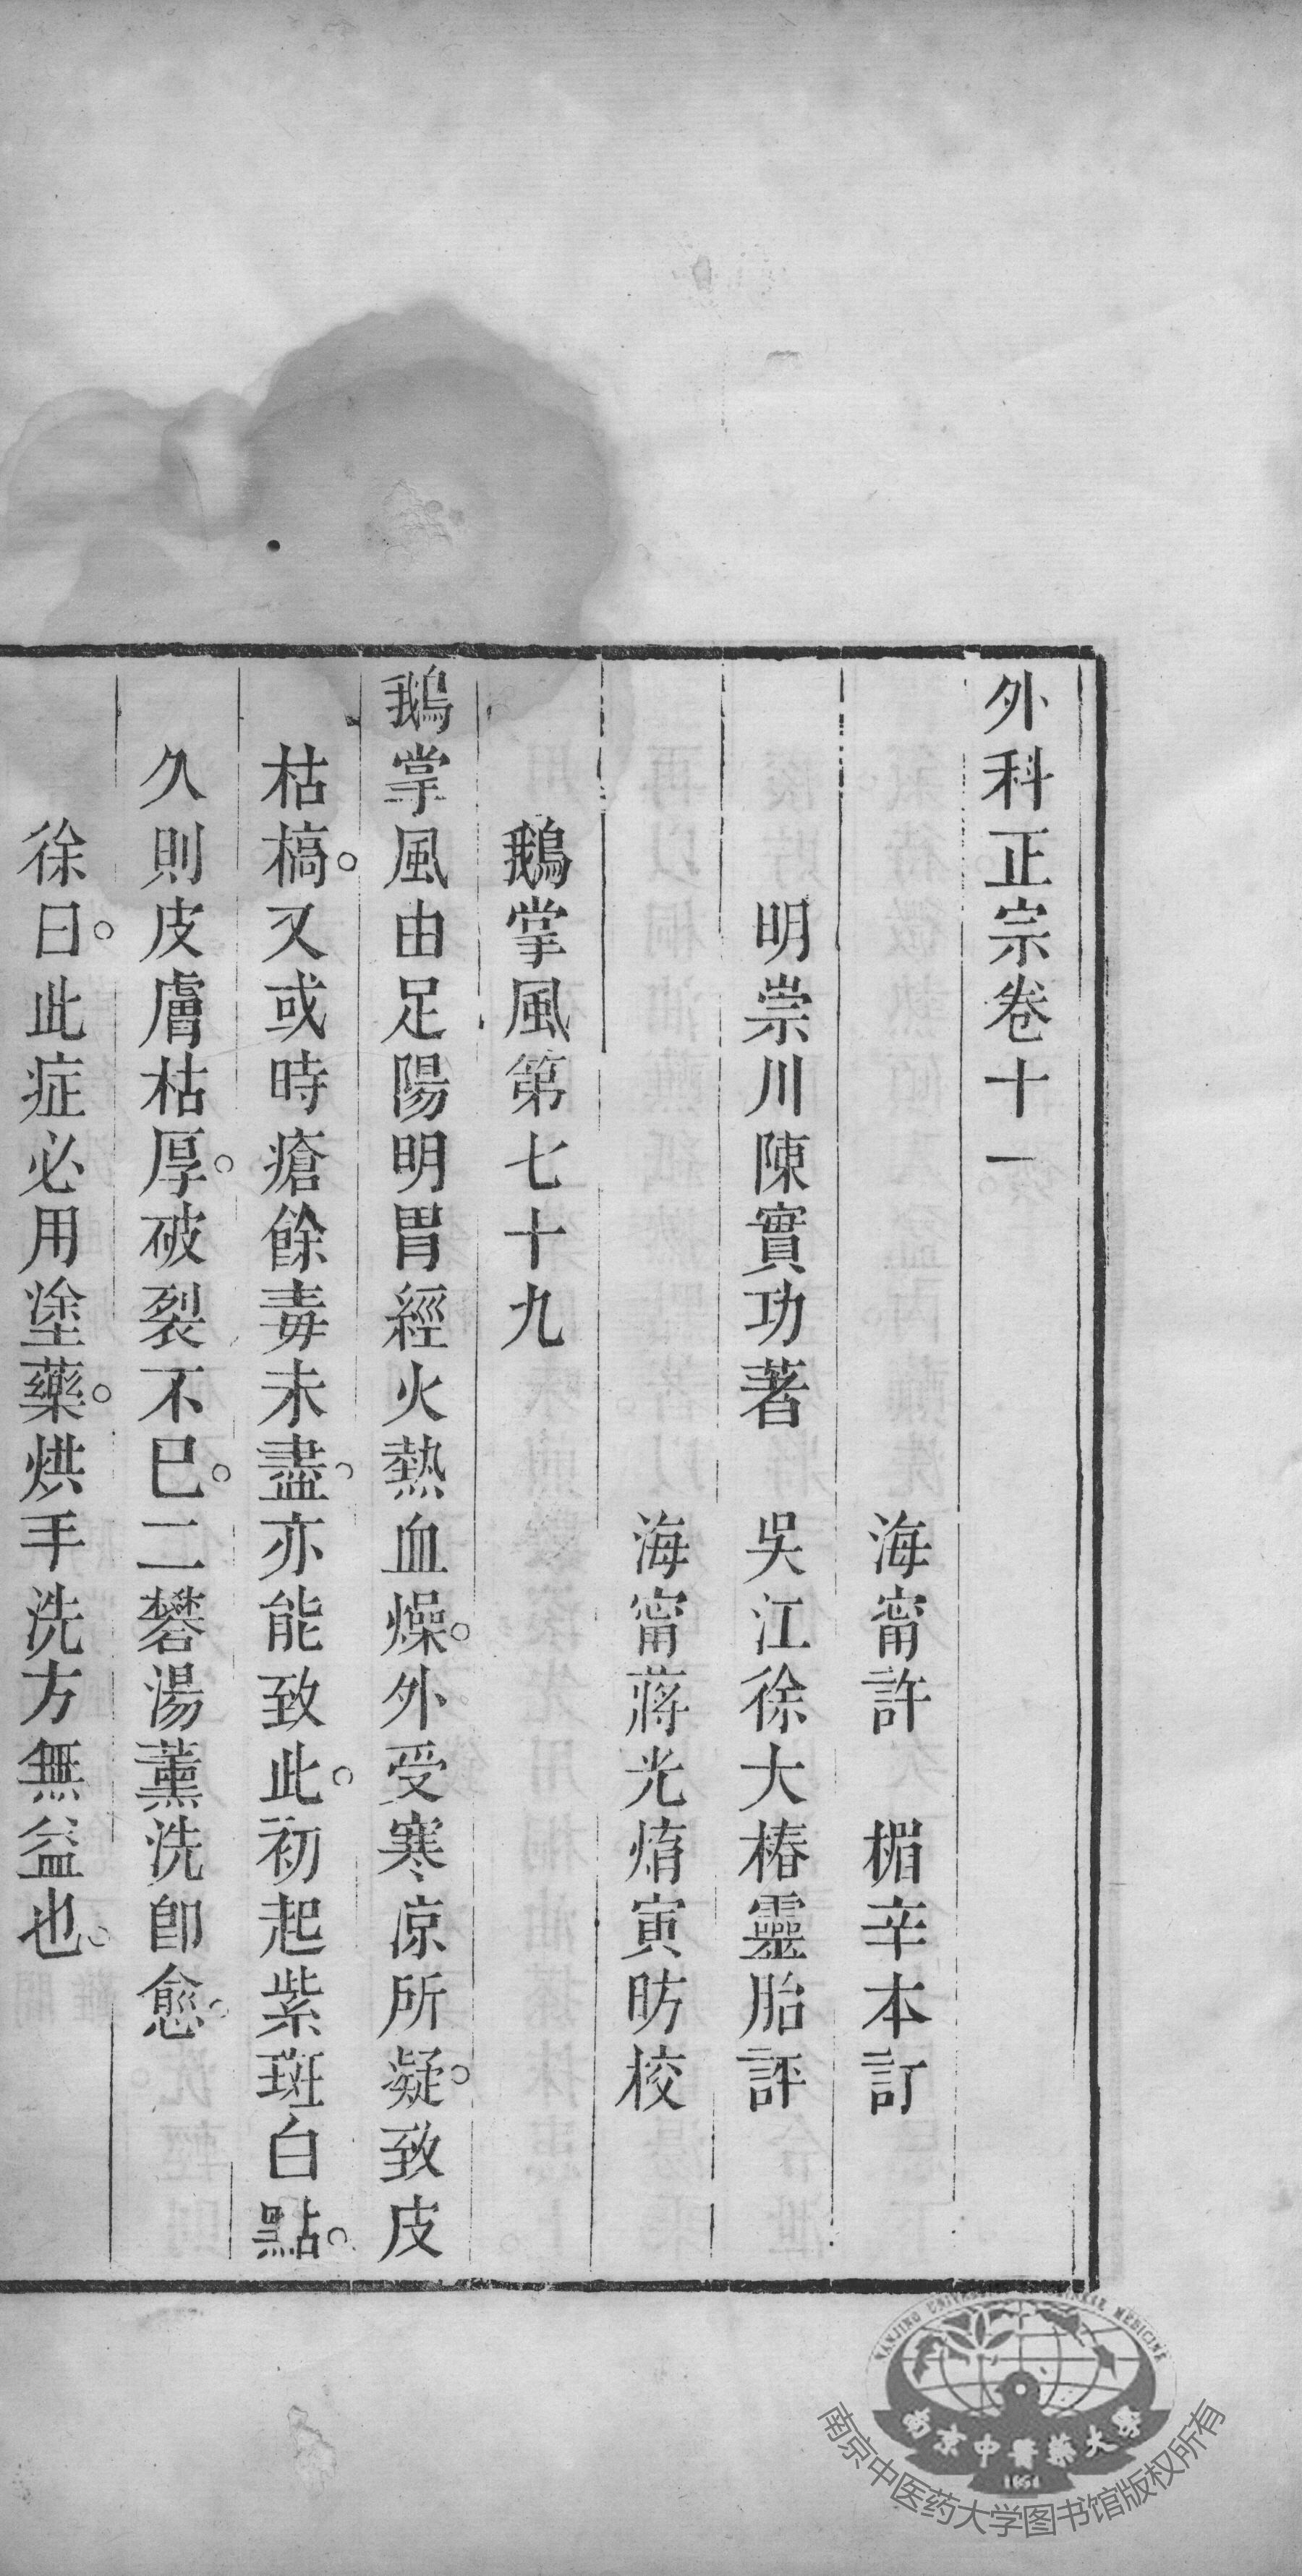 外科正宗卷十一
海甯許　楣辛本訂
明崇川陳實功著　吳江徐大椿靈胎評
海甯蔣光焴寅昉校
鵝掌風第七十九
鵝掌風由足陽明胃經火熱血燥。外受寒凉所凝。致皮
枯槁。又或時瘡餘毒未盡。亦能致此。初起紫斑白點。
久則皮膚枯厚。破裂不已。二礬湯薰洗卽愈。
徐曰。此症必用塗藥。烘手洗方無益也。
NANJING UNIVERSITY OF CHINESE MEDICINE
南京中醫藥大學
1954
南京中医药大学图书馆版权所有